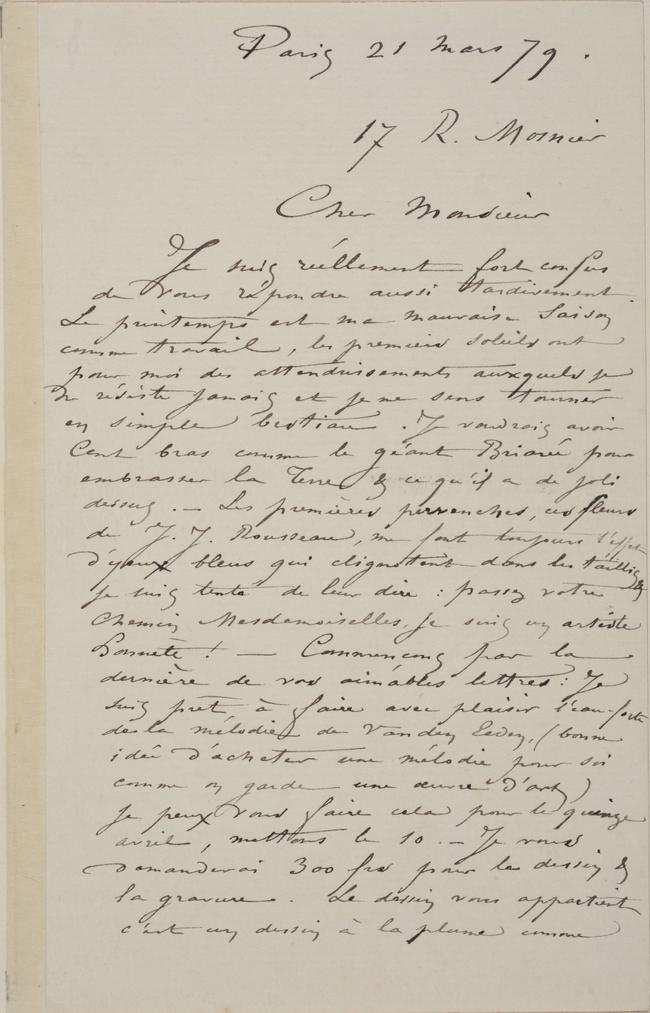 Paris 21 mars 79.
17 R. Mosnier
Cher Monsieur
Je suis réellement fort confus
de vous répondre aussi tardivement.
Le printemps est ma mauvaise saison
comme travail, les premiers soleils ont
pour moi des attendrissements auxquels je
ne résiste jamais et je me sens tourner
en simple bestiau. Je voudrais avoir
Cent bras comme le géant Briarée pour
embrasser la Terre & ce qu'il a de joli
dessus. — Les premières pervenches, ces fleurs
de J. J. Rousseau, me font toujours l'effet
d'yeux bleus qui clignotent dans les taillis &
je suis tenté de leur dire : passez votre
chemin Mesdemoiselles, je suis un artiste
honnête ! — Commençons par la
dernière de vos aimables lettres : Je
suis prêt à faire avec plaisir l'eau-forte
de la mélodie de Vanden Eeden, (bonne
idée d'acheter une mélodie pour soi
comme on garde une œuvre d'art)
je peux vous faire cela pour le quinze
avril, mettons le 10. — Je vous
demanderai 300 frs pour le dessin &
la gravure. Le dessin vous appartient
c'est un dessin à la plume comme